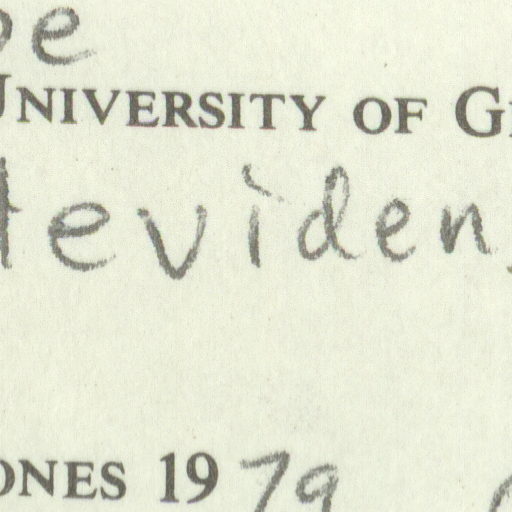 UNIVERSITY OF
eviden
ONES 1979